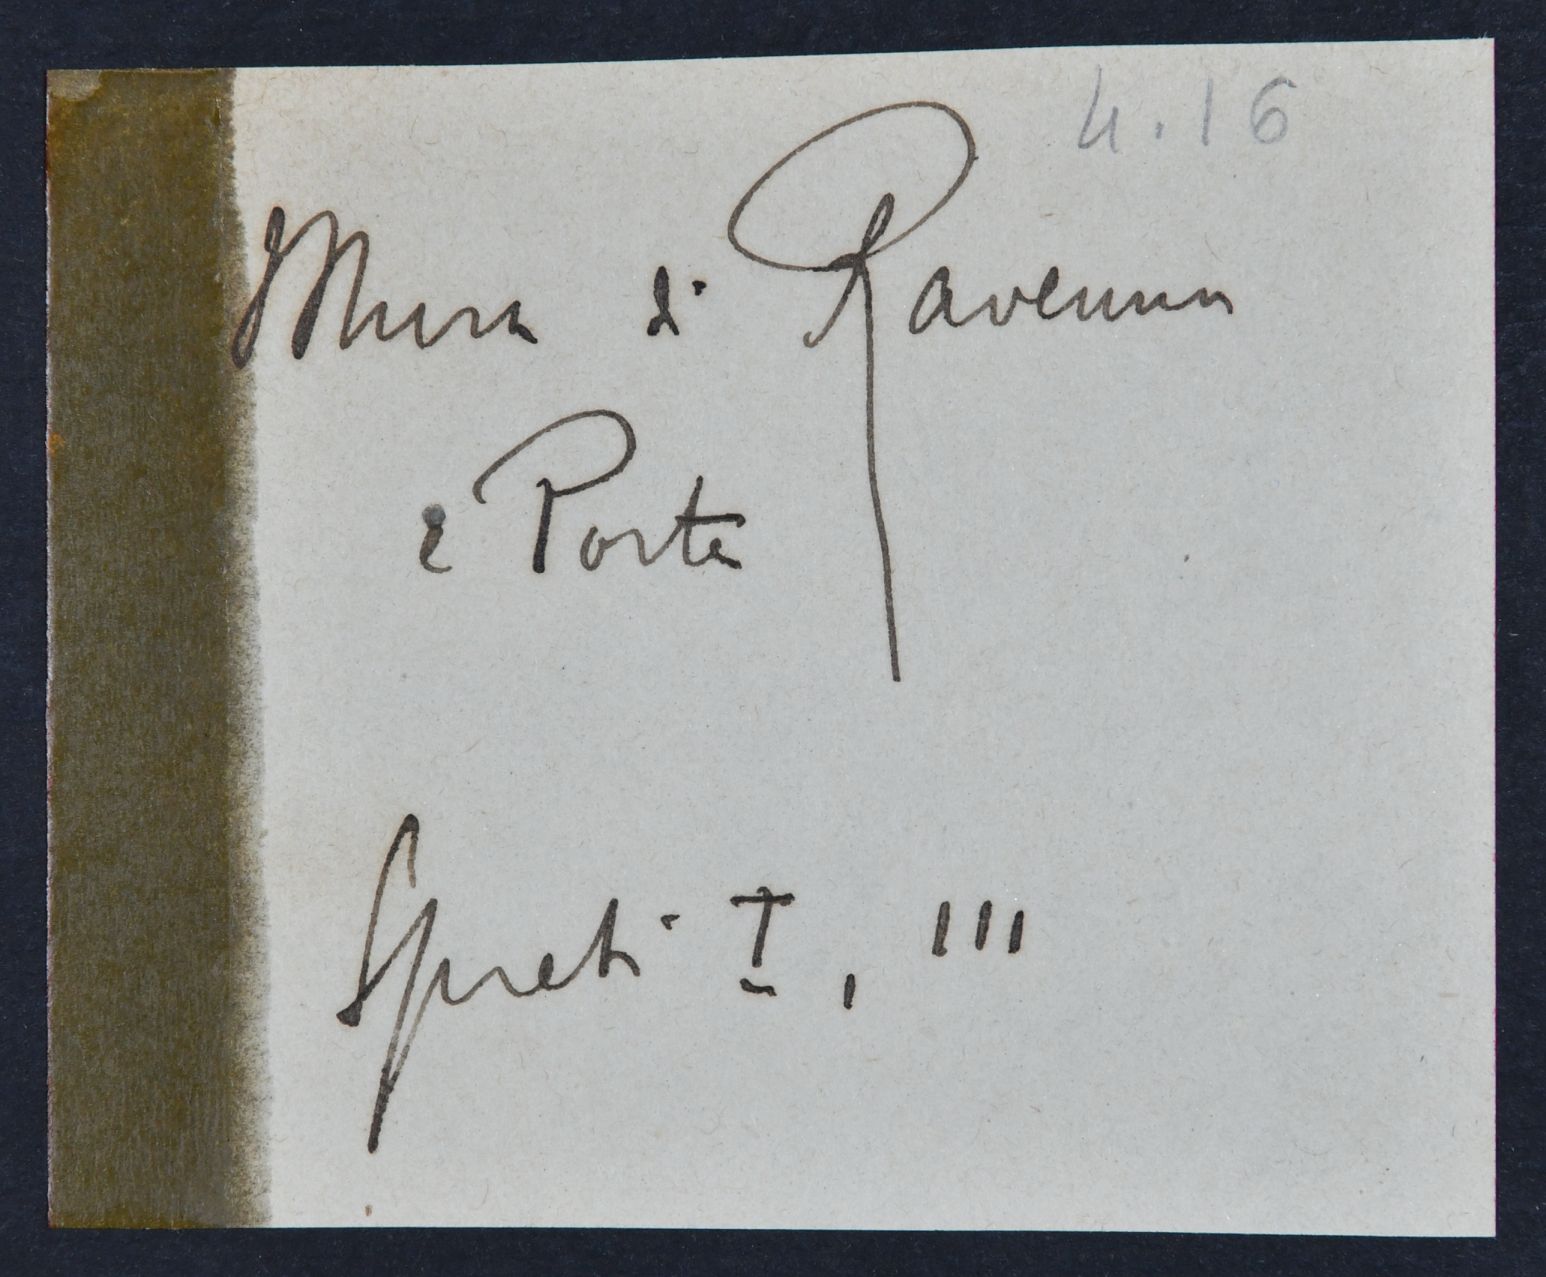 4.16
Mura di Ravenna
e Porte
Spreti I, III